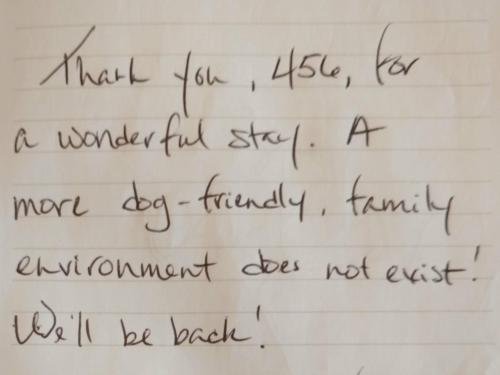 Thank you, 456, for
a wonderful stay. A
more dog-friendly, family
environment does not exist!
We'll be back!